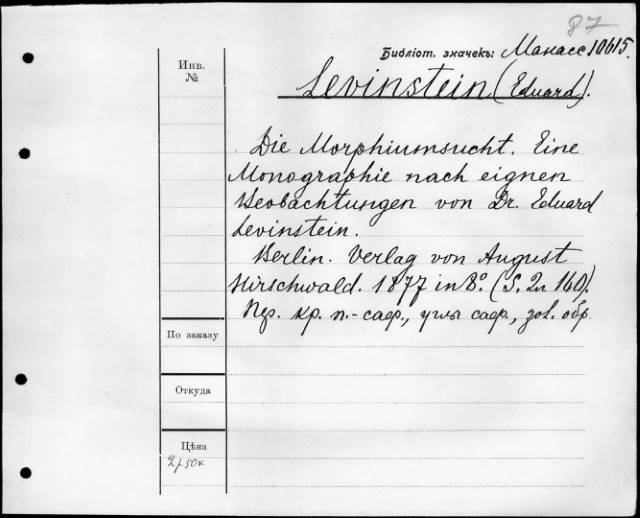 87
Библіот. значекъ: Манасс 10615.
Инв.
№
Levinstein (Eduard).
Die Morphiumsucht. Eine
Monographie nach eignen
Beobachtungen von Dr. Eduard
Levinstein.
Berlin. Verlag von August
Hirschwald. 1877 in 8º. (S. 2 160).
Пер. кр. п.-саф., углы саф., зол. обр.
По заказу
Откуда
Цѣна
2р 50к